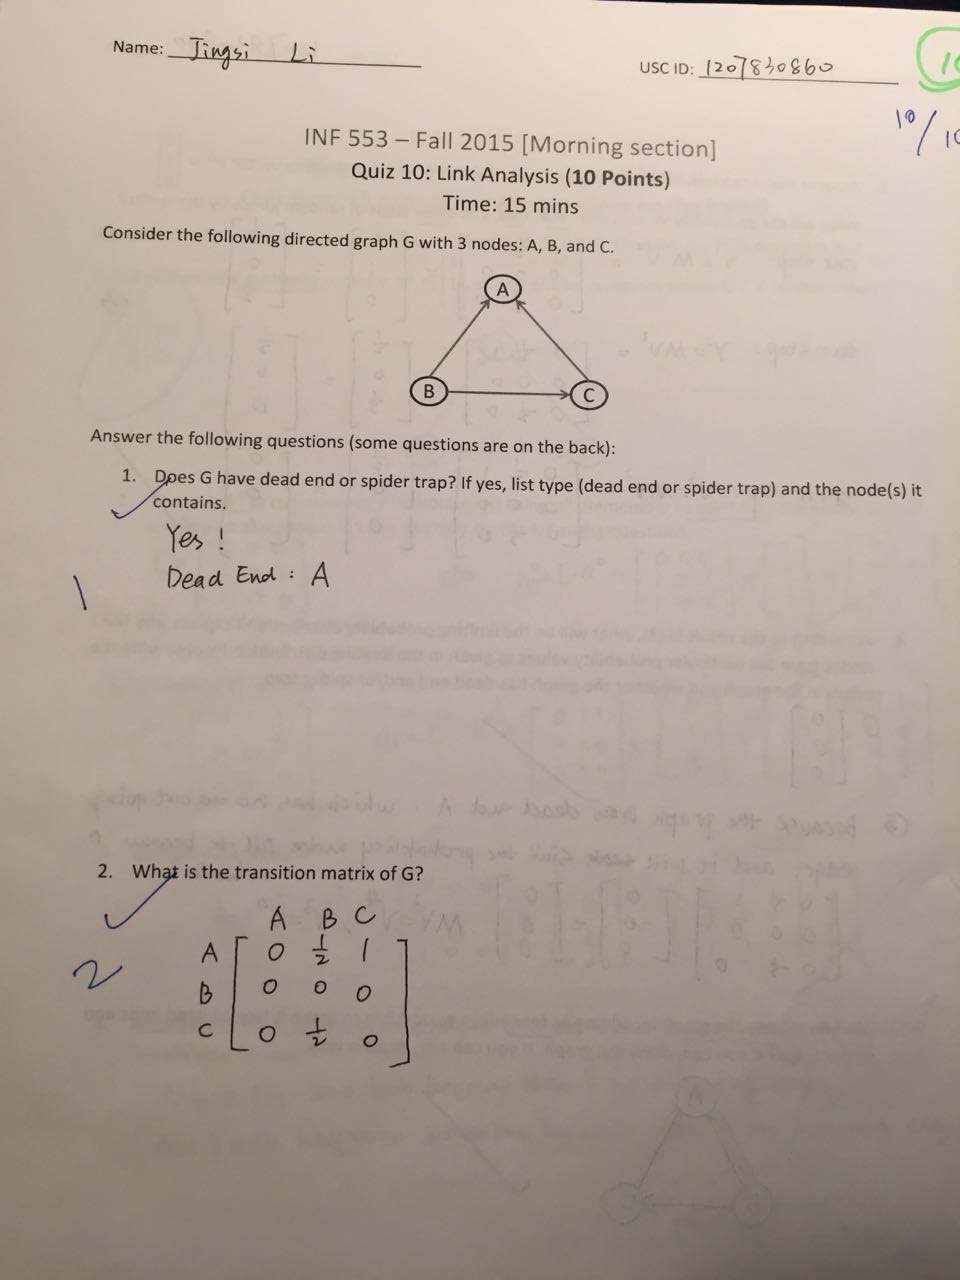 Name: Jingsi Li
USC ID: 1207830860
10
10/10
INF 553 – Fall 2015 [Morning section]
Quiz 10: Link Analysis (10 Points)
Time: 15 mins
Consider the following directed graph G with 3 nodes: A, B, and C.
A
B C
Answer the following questions (some questions are on the back):
1. Does G have dead end or spider trap? If yes, list type (dead end or spider trap) and the node(s) it
contains.
Yes !
Dead End : A
1
2. What is the transition matrix of G?
A B C
A 0 1/2 1
2
B 0 0 0
C 0 1/2 0